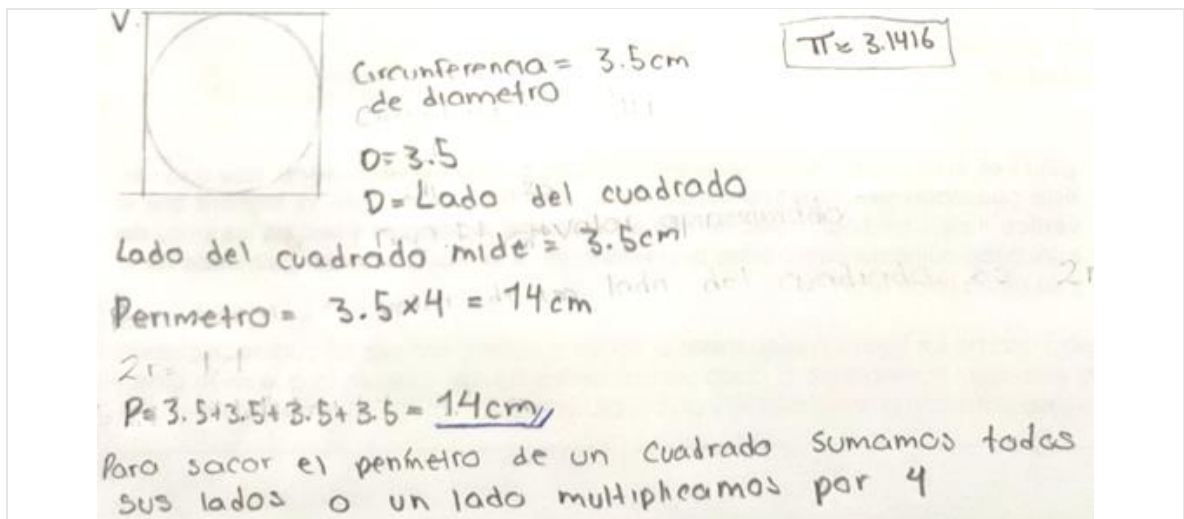 V.
π≈ 3.1416
Circunferencia = 3.5cm
de diametro
D= 3.5
D= Lado del cuadrado
Lado del cuadrado mide = 3.5cm
Perimetro= 3.5×4 = 14cm
2r=
P= 3.5+3.5+3.5+3.5= 14cm
Para sacar el perímetro de un cuadrado sumamos todos
sus lados o un lado multiplicamos por 4